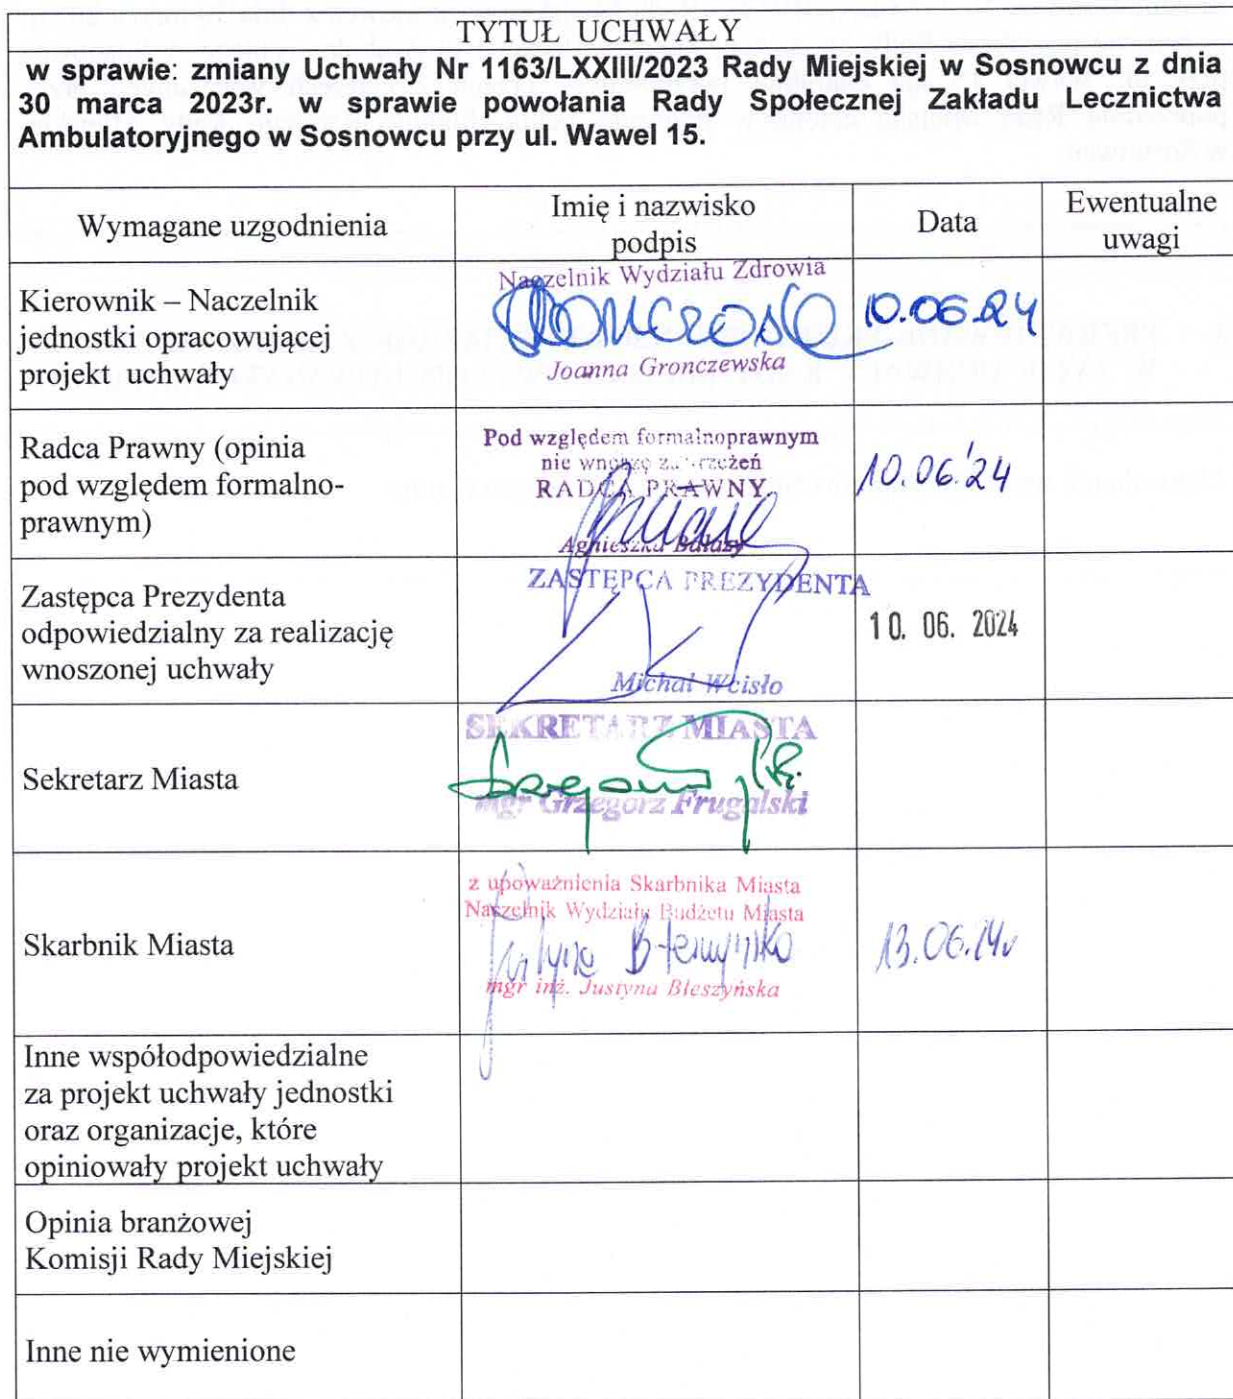 TYTUŁ UCHWAŁY
w sprawie: zmiany Uchwały Nr 1163/LXXIII/2023 Rady Miejskiej w Sosnowcu z dnia
30 marca 2023r. w sprawie powołania Rady Społecznej Zakładu Lecznictwa
Ambulatoryjnego w Sosnowcu przy ul. Wawel 15.
Wymagane uzgodnienia
Imię i nazwisko
podpis
Data
Ewentualne
uwagi
Kierownik – Naczelnik
jednostki opracowującej
projekt uchwały
Naczelnik Wydziału Zdrowia
Joanna Gronczewska
10.06.24
Radca Prawny (opinia
pod względem formalno-
prawnym)
Pod względem formalnoprawnym
nie wnoszę zastrzeżeń
RADCA PRAWNY
Agnieszka
10.06.'24
Zastępca Prezydenta
odpowiedzialny za realizację
wnoszonej uchwały
ZASTĘPCA PREZYDENTA
Michał Wcisło
10. 06. 2024
Sekretarz Miasta
SEKRETARZ MIASTA
mgr Grzegorz Frugalski
Skarbnik Miasta
z upoważnienia Skarbnika Miasta
Naczelnik Wydziału Budżetu Miasta
mgr inż. Justyna Błeszyńska
13.06.
Inne współodpowiedzialne
za projekt uchwały jednostki
oraz organizacje, które
opiniowały projekt uchwały
Opinia branżowej
Komisji Rady Miejskiej
Inne nie wymienione